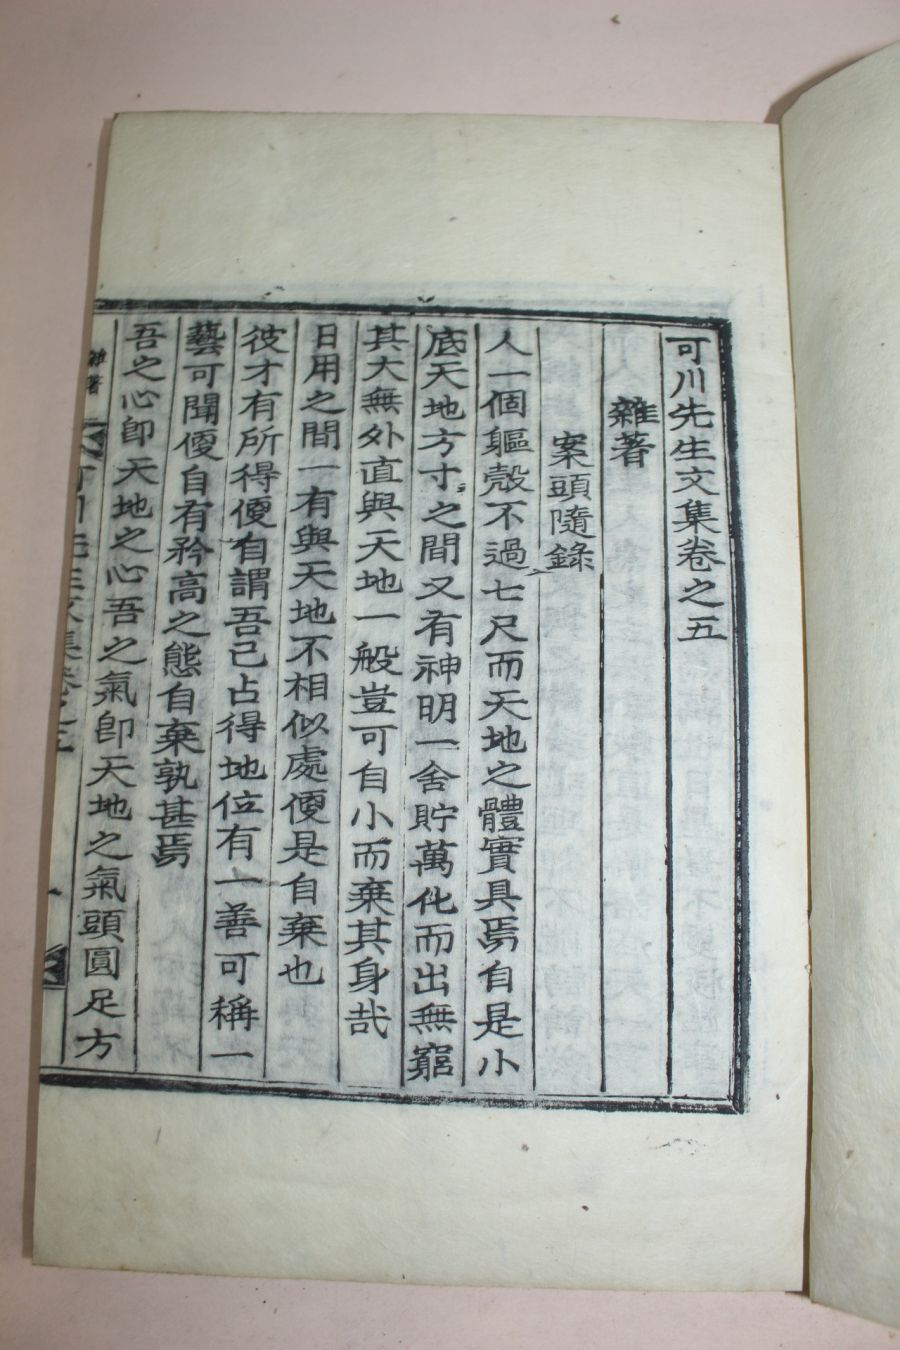 可川先生文集卷之五
雜著
案頭隨錄
人一個軀殼不過七尺而天地之體實具焉自是小
底天地方寸之間又有神明一舍貯萬化而出無窮
其大無外直與天地一般豈可自小而棄其身哉
日用之間一有與天地不相似處便是自棄也
彼才有所得便自謂吾己占得地位有一善可稱一
藝可聞便自有矜高之態自棄孰甚焉
吾之心卽天地之心吾之氣卽天地之氣頭圓足方
雜著
可川先生文集卷之五
一